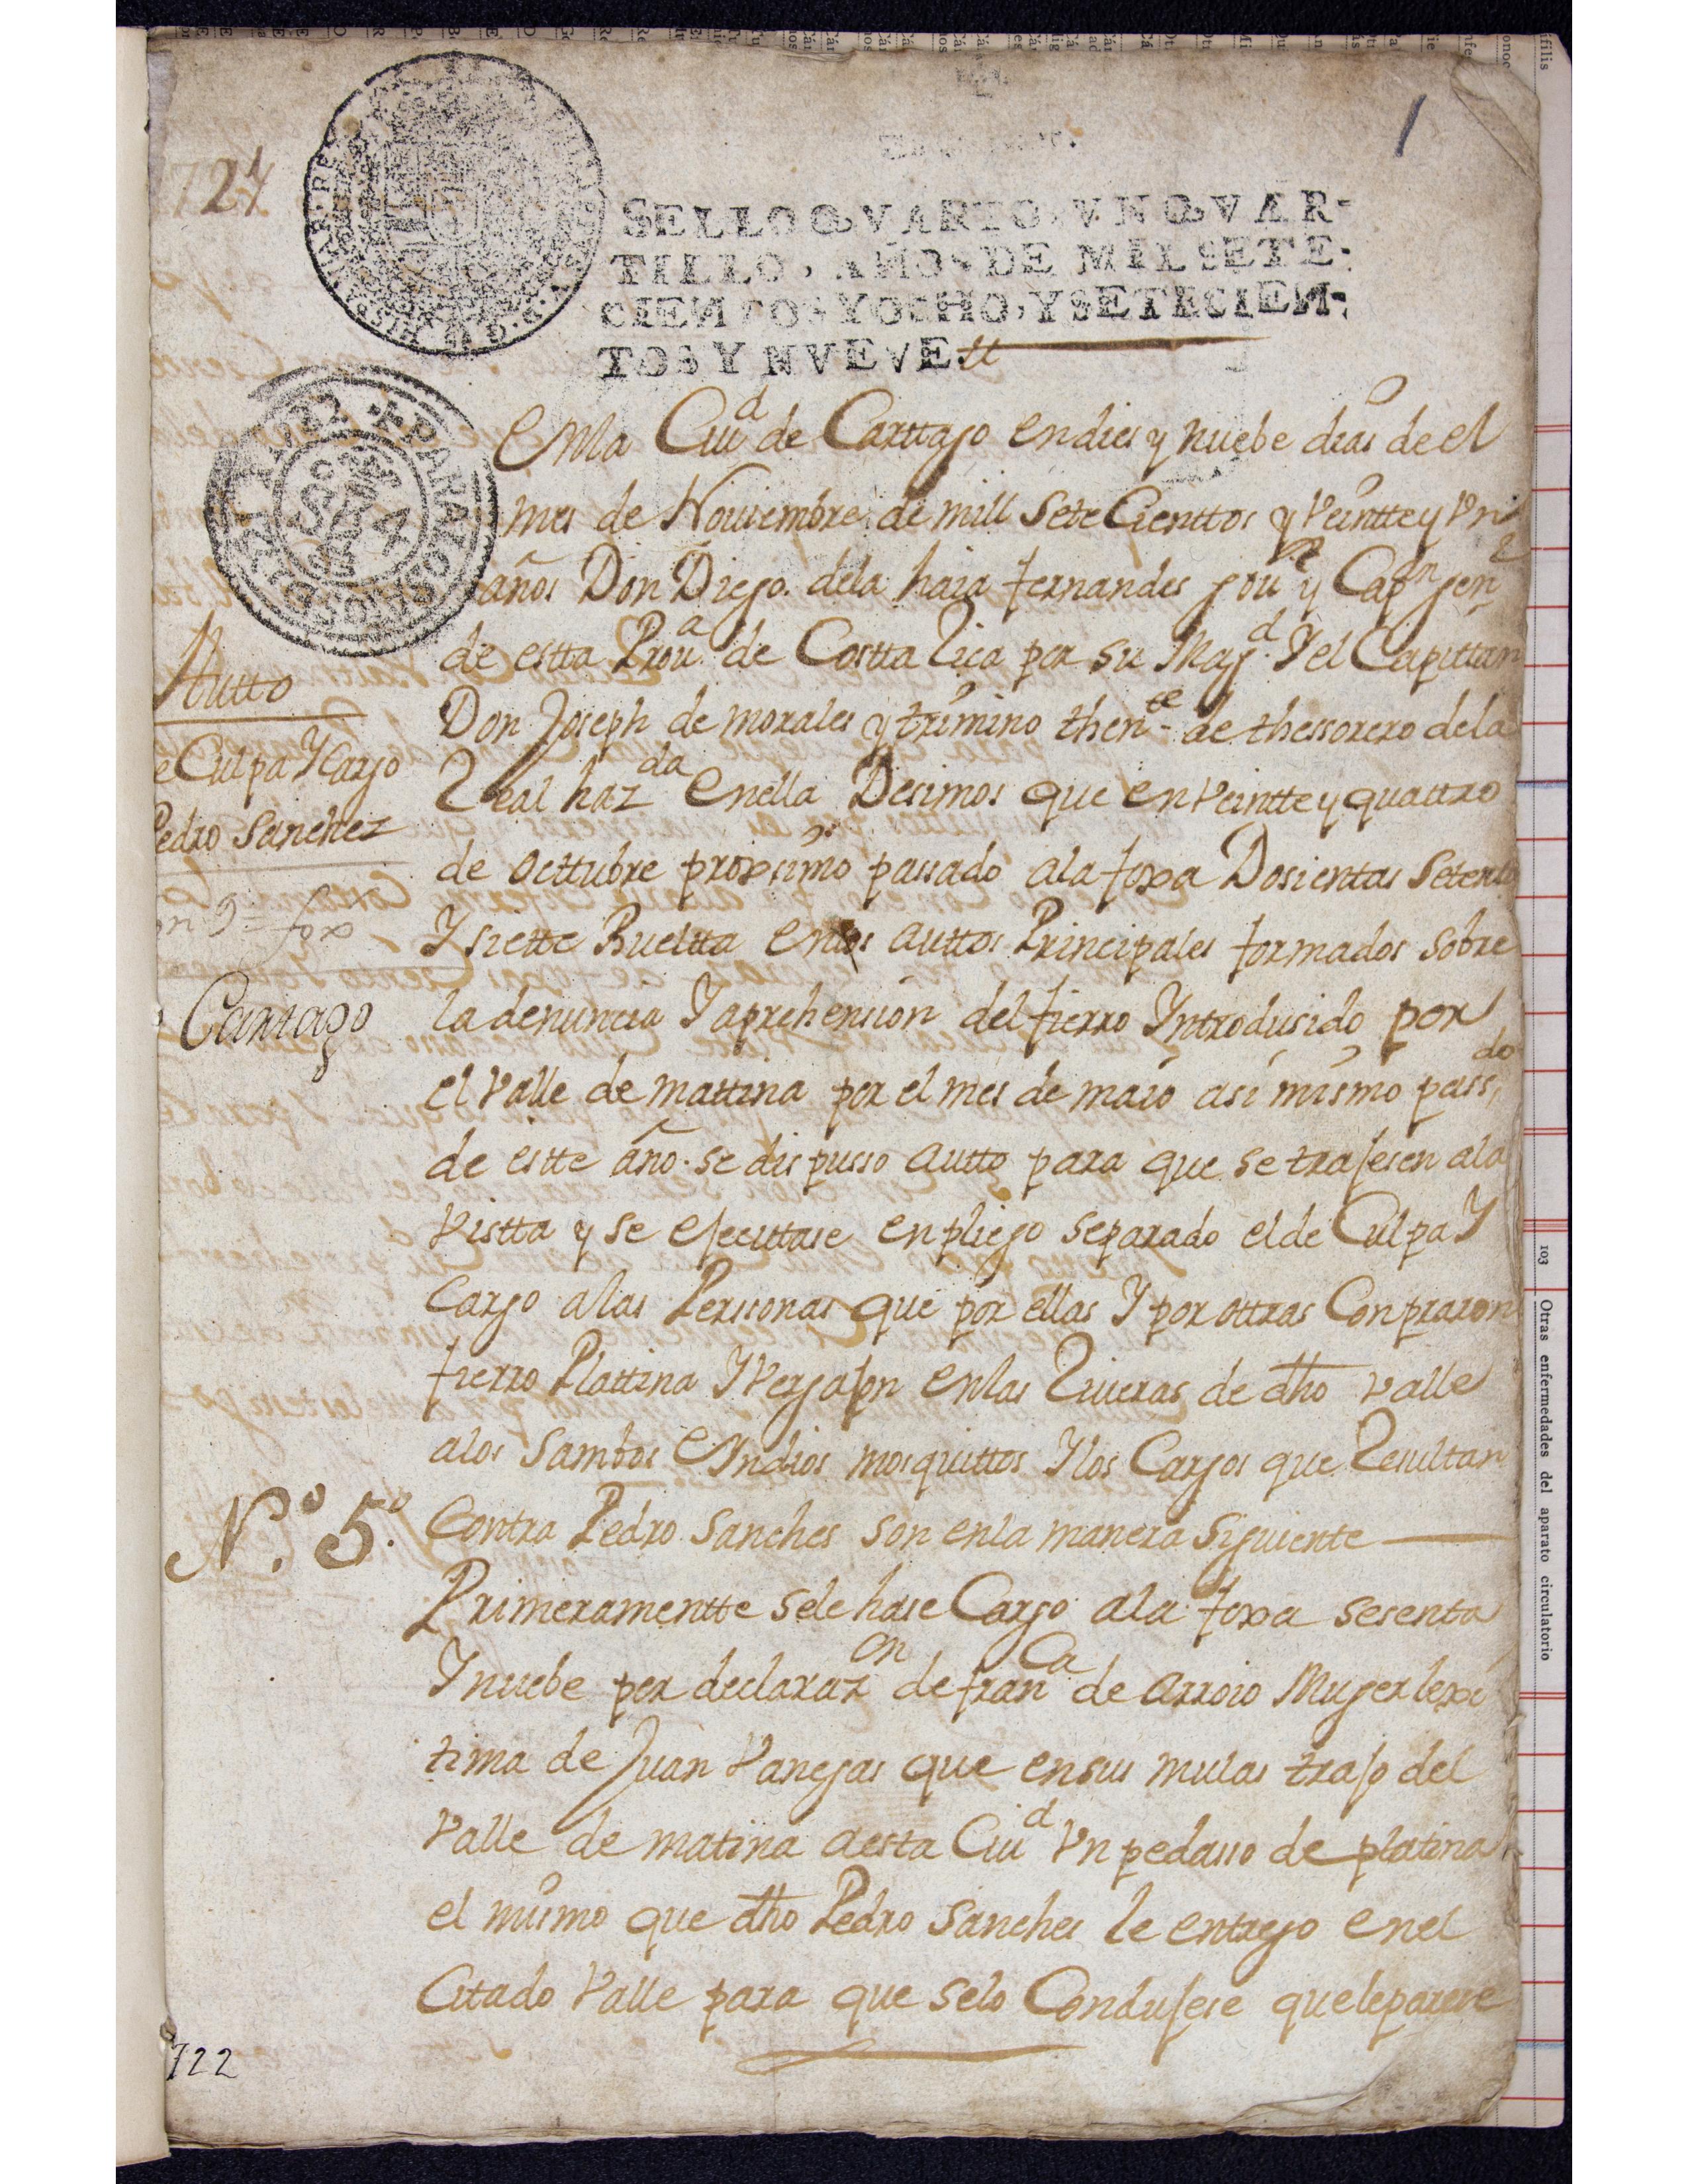 1
724
SELLO QVARTO, VN QVAR-
TILLO, AÑOS DE MIL SETE-
CIENTOS Y OCHO, Y SETECIEN-
TOS Y NVEVE.
Enla Ciud de Carttago en dies y nuebe dias de el
mes de Nouiembre de mill sete Cienttos y Veintte y Un
años Don Diego dela haia fernandes gour y Capn jenl
de estta Proua de Costta Rica por su Magd Y el Capittan
Don Joseph de morales y trimino thente de thessorero dela
Real hazda Enella Desimos que en veintte y quattro
de octtubre proxsimo passado ala foxa Dosientas Setenta
Y siette Buelta en los auttos Principales formados sobre
la denuncia Y aprehension del fierro Yntrodusido por
el Valle de mattina por el mes de maio asi mismo passdo
de estte año se dispusso autto para que se trajesen ala
Vistta y se ejecutase en pliego separado el de Culpa Y
Cargo a las Perssonas que por ellas Y por ottras Conpraron
fierro Plattina Y Vergajon en las Riueras de dho valle
alos Sambos E Yndios mosquittos Y los Cargos que Resultan
Contra Pedro Sanches son enla manera Siguiente
Primeramentte sele hase Cargo ala foxa sesenta
Y nuebe por declarazon de franca de arroio Muger lexi
tima de Juan Vanegas que en sus mulas trajo del
Valle de matina aesta Ciud Un pedasso de platina
el mismo que dho Pedro Sanches le entrego en el
Citado Valle para que selo Condujese que le parese
Autto
e Culpa Y Cargo
Pedro Sanchez
fox
Cartago
N.º 5º.
722
103 Otras enfermedades del aparato circulatorio